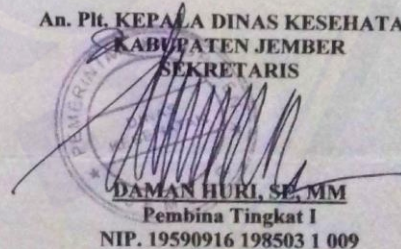 An. Plt. KEPALA DINAS KESEHATA
KABUPATEN JEMBER
SEKRETARIS
PEMERINTA
DAMAN HURI, SE, MM
Pembina Tingkat I
NIP. 19590916 198503 1 009